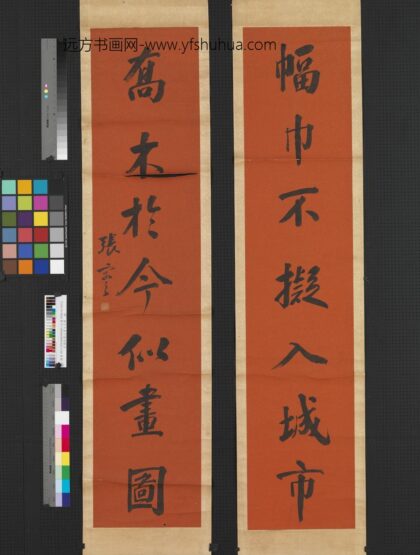 远方书画网-www.yfshuhua.com
幅巾不擬入城市
喬木於今似畫圖
張